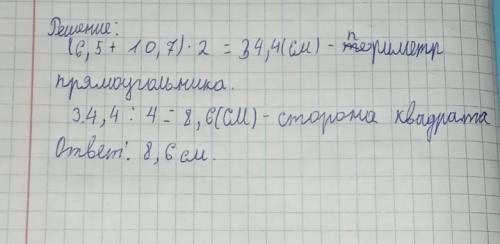 Решение:
(6,5 + 10,7) · 2 = 34,4(см) - периметр
прямоугольника.
34,4 : 4 = 8,6(см) - сторона квадрата
Ответ: 8,6 см.